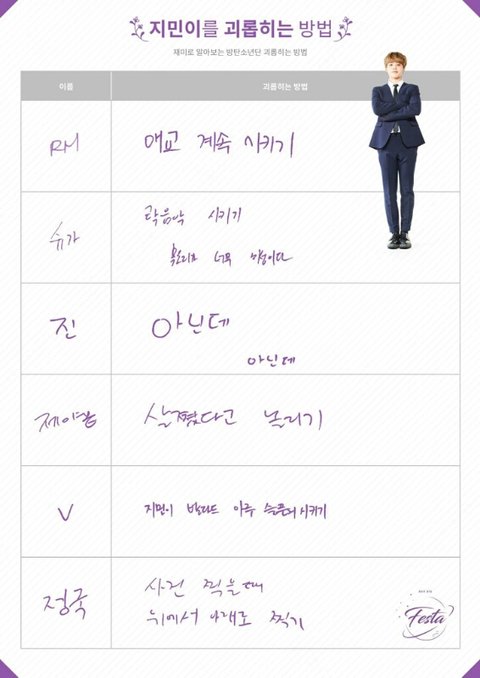 지민이를 괴롭히는 방법
재미로 알아보는 방탄소년단 괴롭히는 방법
이름 괴롭히는 방법
RM 애교 계속 시키기
슈가 락음악 시키기
목소리가 너무 미성이다
진 아닌데
아닌데
제이홉 살쪘다고 놀리기
V 지민이 발라드 아주 슬픈거 시키기
정국 사진 찍을때
위에서 아래로 찍기
Festa